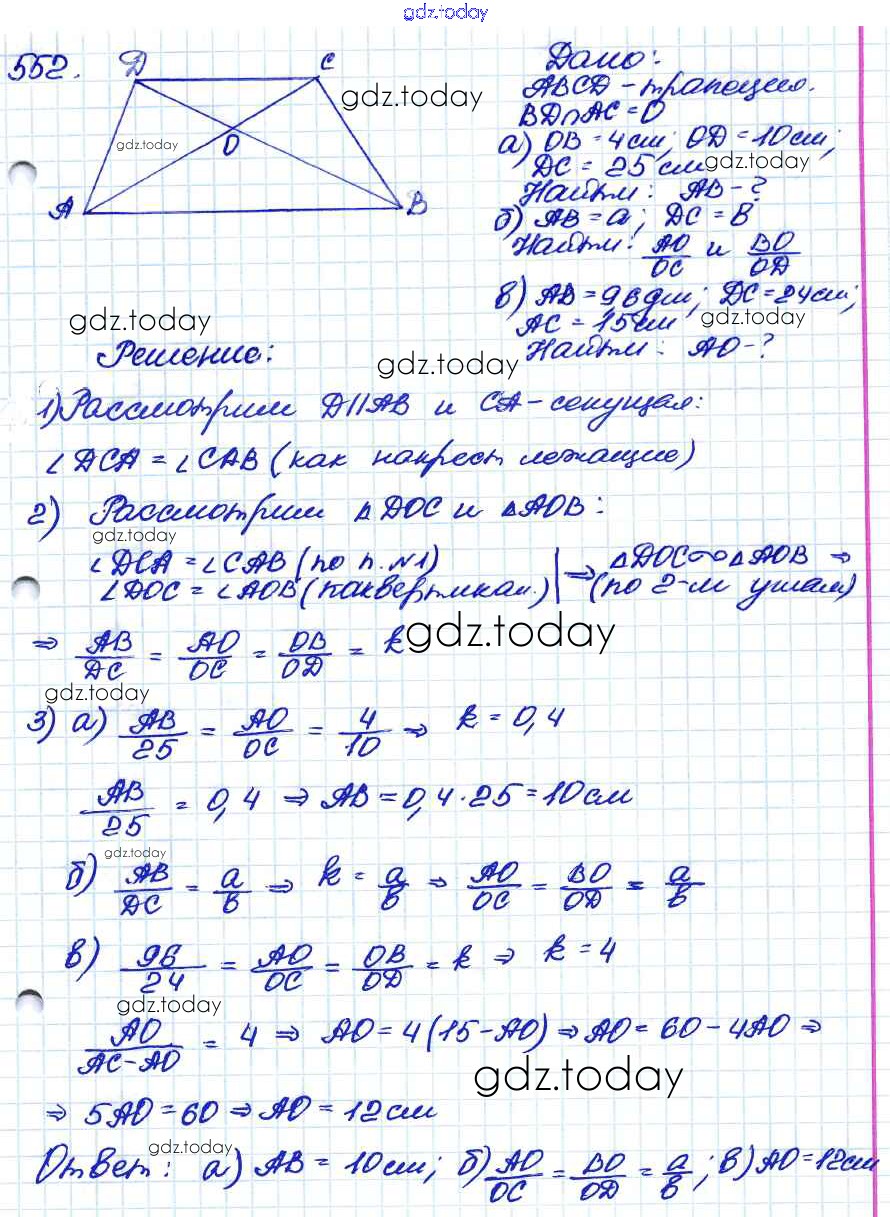 gdz.today
552.
D
C
O
A
B
gdz.today
Дано:
ABCD - трапеция.
BD∩AC = O
gdz.today
а) OB = 4 см; OD = 10 см;
DC = 25 см
gdz.today
Найти: AB - ?
б) AB = a; DC = b
Найти: AO/OC и BO/OD
в) AB = 96 дм; DC = 24 см;
AC = 15 см
gdz.today
Найти: AO - ?
gdz.today
Решение:
gdz.today
1) Рассмотрим D||AB и CA - секущая:
∠DCA = ∠CAB (как накрест лежащие)
2) Рассмотрим △DOC и △AOB:
gdz.today
∠DCA = ∠CAB (по п. N1)
∠DOC = ∠AOB (как вертикал.)
⇒ △DOC ~ △AOB ⇒
(по 2-м углам)
⇒ AB/DC = AO/OC = OB/OD = k
gdz.today
gdz.today
3) а) AB/25 = AO/OC = 4/10 ⇒ k = 0,4
AB/25 = 0,4 ⇒ AB = 0,4 · 25 = 10 см
gdz.today
б) AB/DC = a/b ⇒ k = a/b ⇒ AO/OC = BO/OD = a/b
в) 96/24 = AO/OC = OB/OD = k ⇒ k = 4
gdz.today
AO/(AC - AO) = 4 ⇒ AO = 4(15 - AO) ⇒ AO = 60 - 4AO ⇒
gdz.today
⇒ 5AO = 60 ⇒ AO = 12 см
gdz.today
Ответ: а) AB = 10 см; б) AO/OC = BO/OD = a/b; в) AO = 12 см